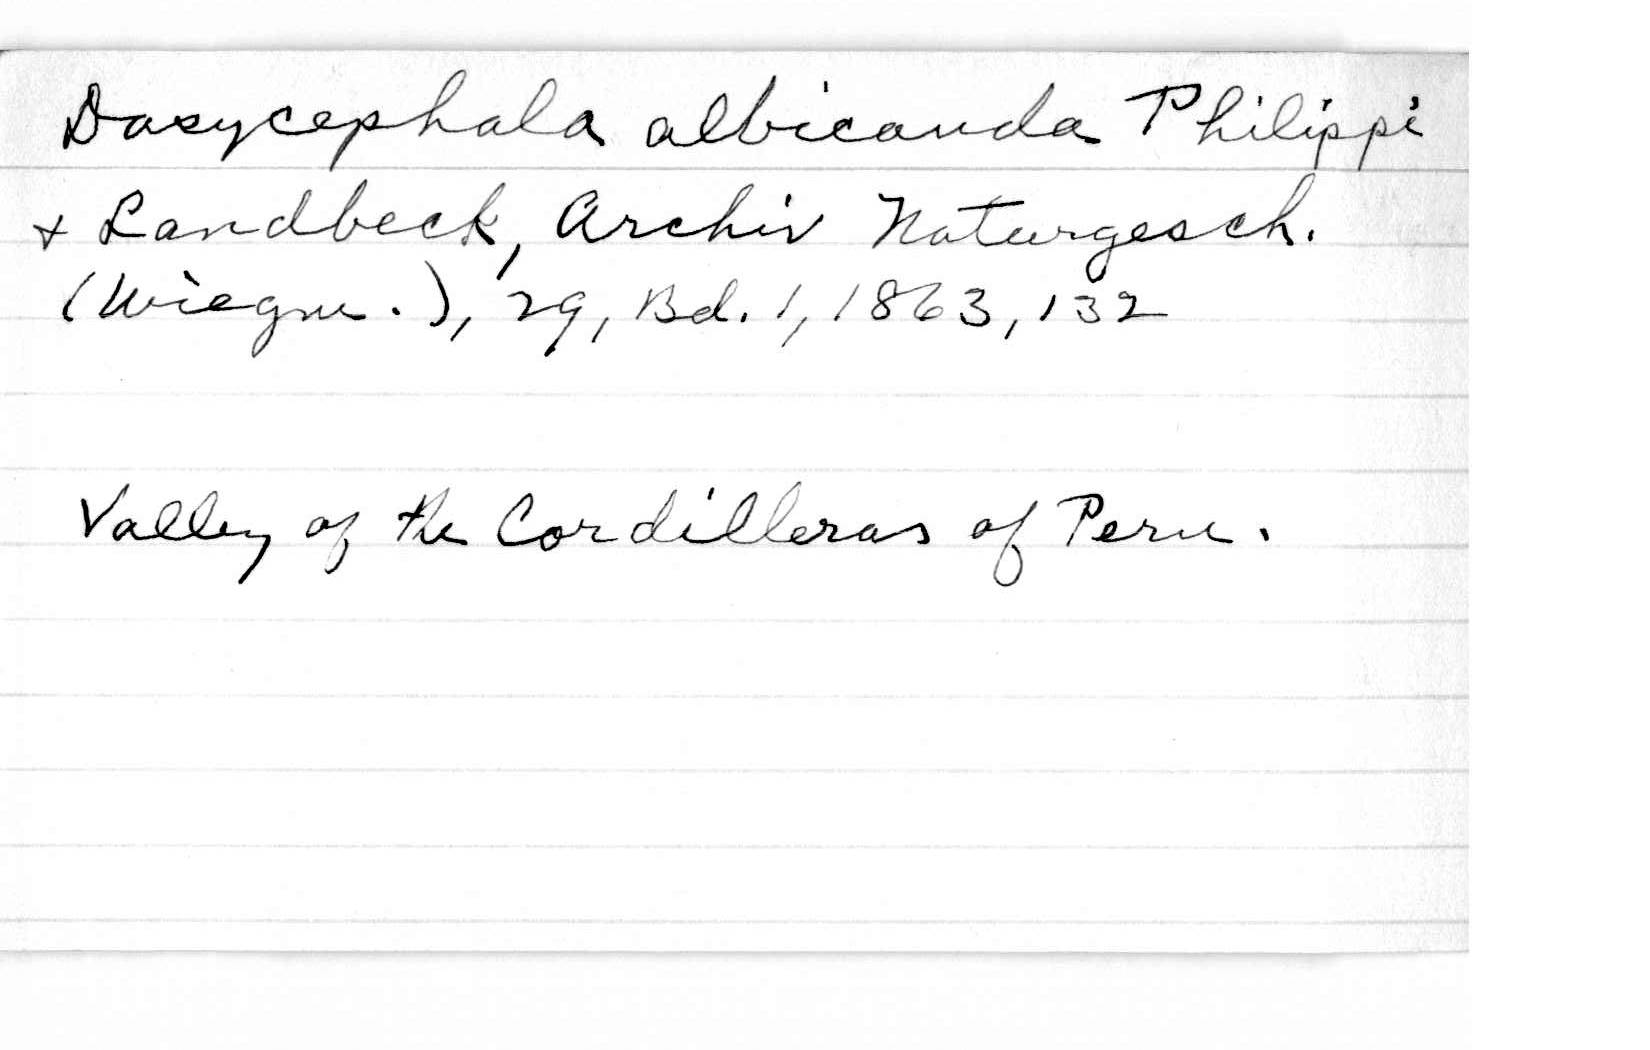 Dasycephala albicauda Philippi
& Landbeck, Archiv Naturgesch.
(Wiegm.), 29, Bd. 1, 1863, 132
Valley of the Cordilleras of Peru.